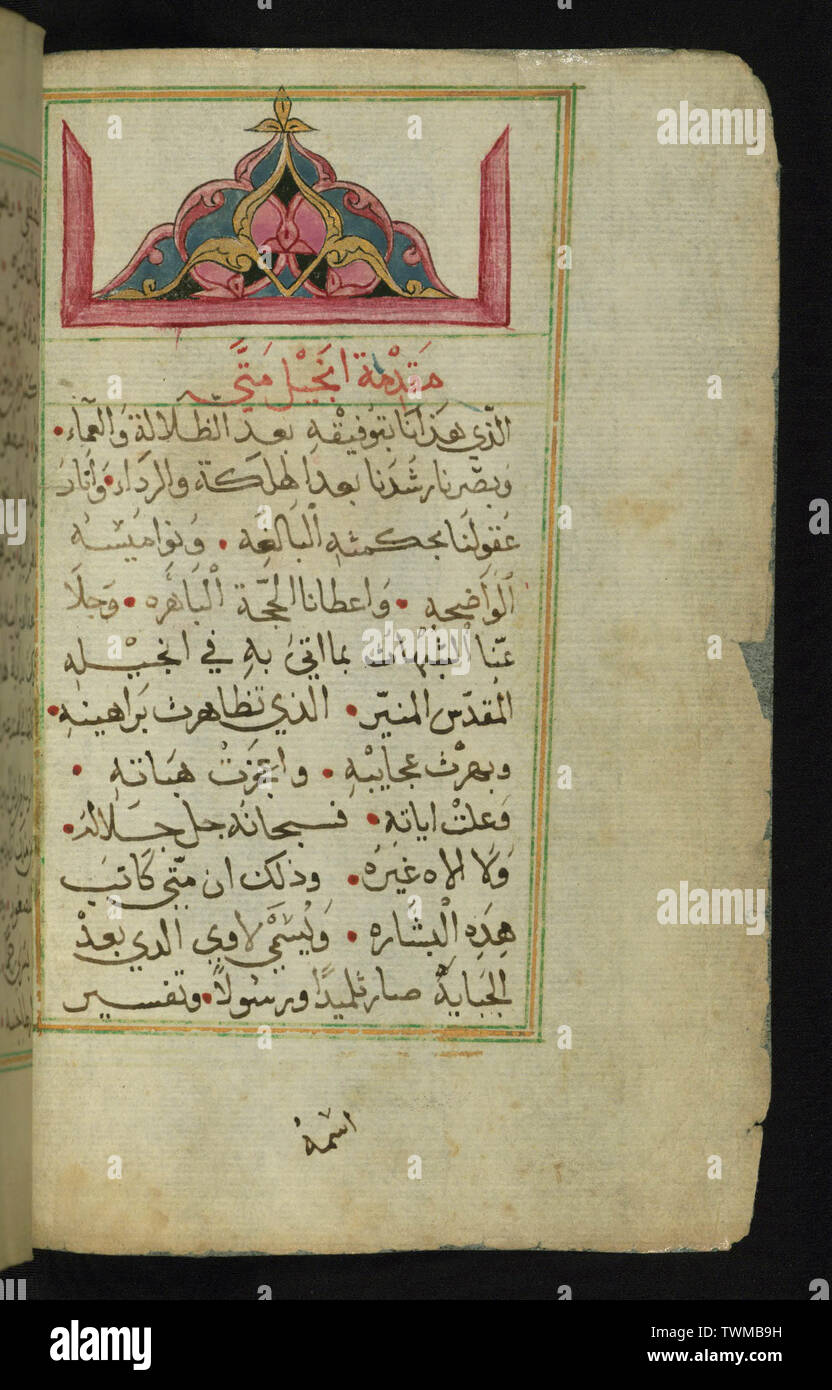 مقدمة انجيل متي
الذي هدانا بتوفيقه بعد الظلالة والعماء •
وبصرنا رشدنا بعد الهلكة والرداء • وانار
عقولنا بحكمته البالغه • ونواميسه
الواضحه • واعطانا الحجة الباهره • وجلا
عنا الشبهات بما اتى به في انجيله
المقدس المنير • الذي تظاهرت براهينه •
وبهرت عجايبه • واعجزت هباته •
وعلت اياته • فسبحانه جل جلاله •
ولا الاه غيره • وذلك ان متي كاتب
هذه البشاره • ويسمي لاوي الدي بعد
الجباية صار تلميدًا ورسولًا • وتفسير
اسمه
alamy
TWMB9H
www.alamy.com